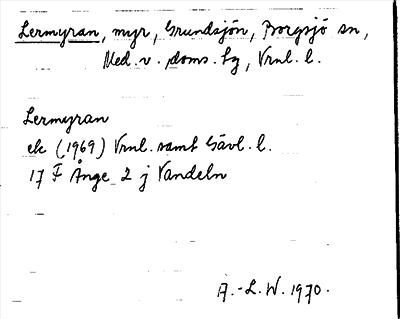 Lermyran, myr, Grundsjön, Borgsjö sn,
Med. v. doms. hg, Vrnl. l.
Lermyran
ek (1969) Vrnl. samt Gävl. l.
17 F Ånge 2 j Vandeln
A.-L. W. 1970.